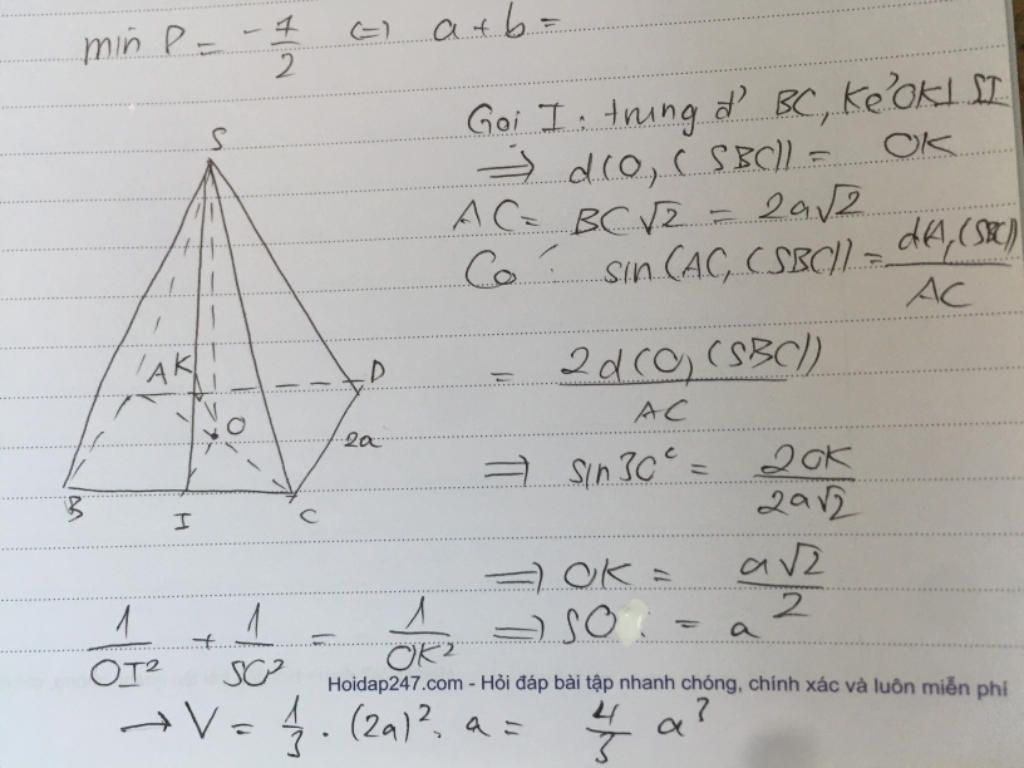 min P = -7/2 <=> a + b =
Gọi I : trung đ' BC, Kẻ OK⊥SI
=> d(O, (SBC)) = OK
AC = BC√2 = 2a√2
Có : sin(AC, (SBC)) = d(A, (SBC)) / AC
= 2d(O, (SBC)) / AC
=> sin30° = 2OK / 2a√2
=> OK = a√2 / 2
1/OI² + 1/SO² = 1/OK² => SO = a
Hoidap247.com - Hỏi đáp bài tập nhanh chóng, chính xác và luôn miễn phí
→ V = 1/3 . (2a)² . a = 4/3 a³
S
A K D
O
2a
B I C